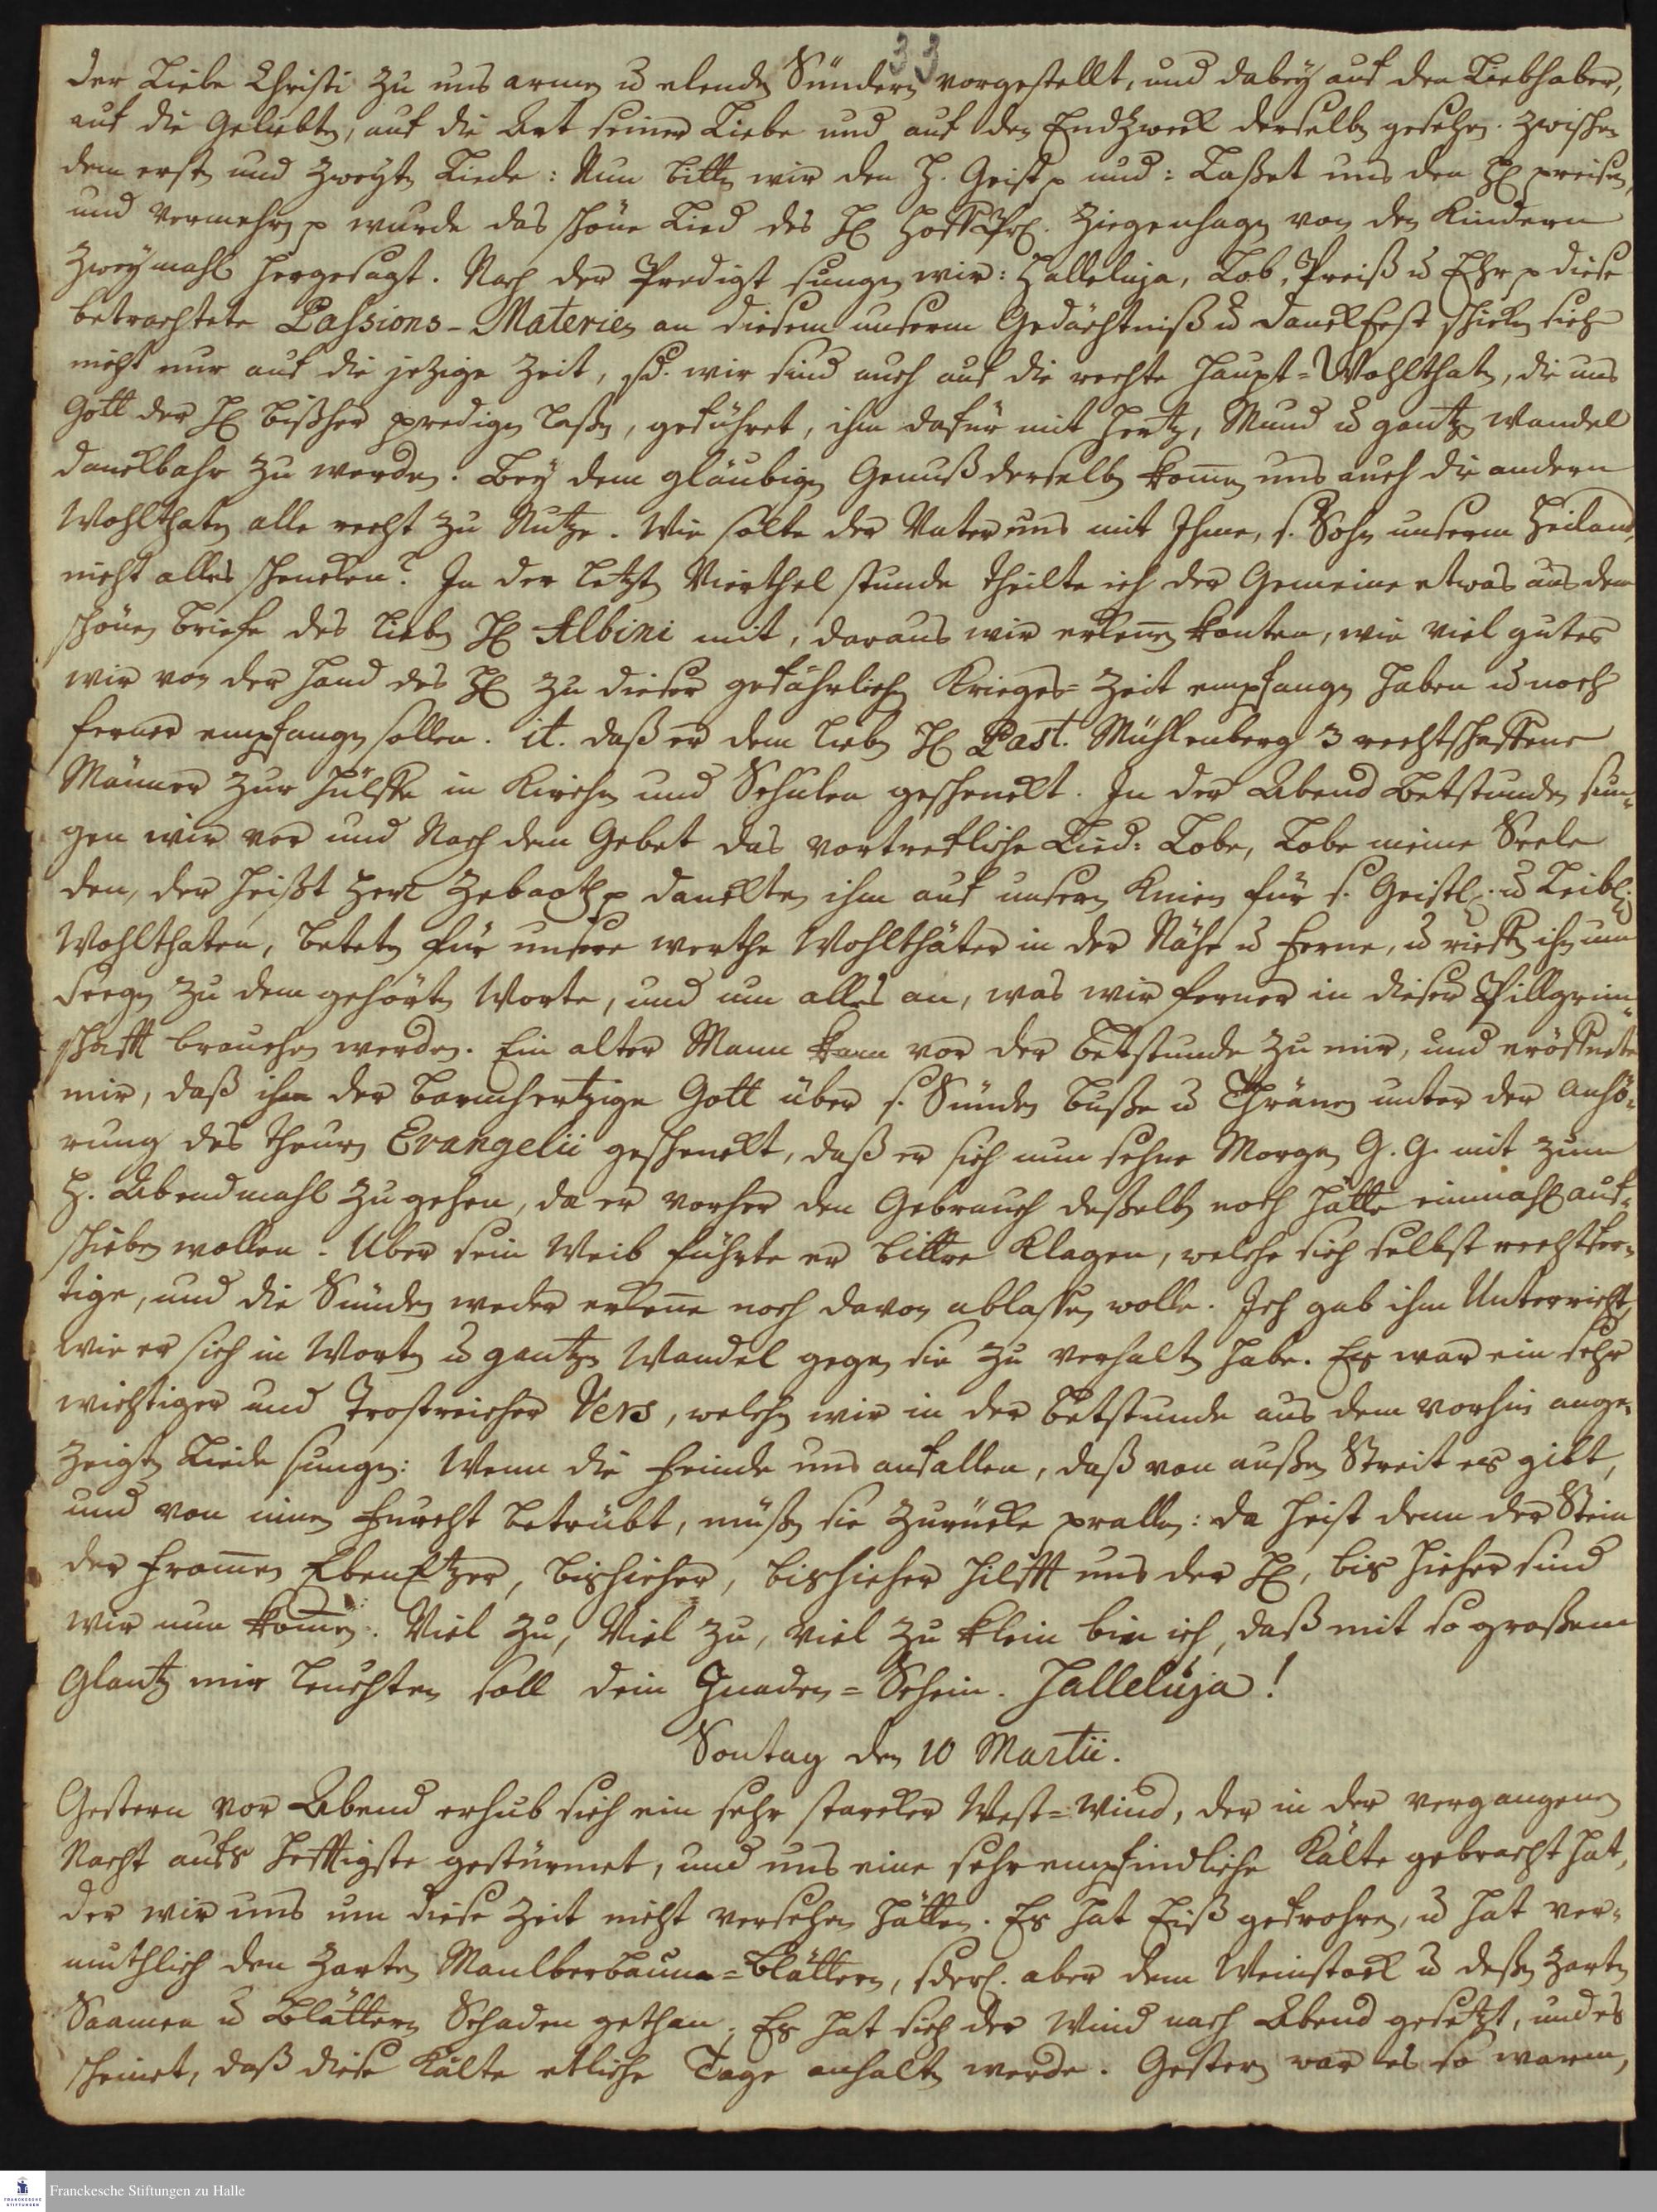 33
der Liebe Christi zu uns armen u. elenden Sündern vorgestellt, und dabey auf den Liebhaber,
auf die Geliebten, auf die Art seiner Liebe und auf den Endzweck derselben gesehen. Zwischen
dem ersten und zweyten Liede: Nun bitten wir den H. Geist p und: Laßet uns den HE preisen,
und vermehren p wurde das schöne Lied des HE HoffPr. Ziegenhagen von den Kindern
zweymahl hergesagt. Nach der Predigt sungen wir: Halleluja, Lob, Preiß u. Ehr p diese
betrachtete Passions-Materien an diesem unserm Gedächtniß u. Danckfest schicken sich
nicht nur auf die jezige Zeit, sd. wir sind auch auf die rechte Haupt-Wohlthat, die uns
Gott der HE bißher predigen laßen, geführet, ihm dafür mit Hertz, Mund u. gantzen Wandel
danckbahr zu werden. Bey dem gläubigen Genuß derselben kom̄en uns auch die andern
Wohlthaten alle recht zu Nutze. Wie solte der Vater uns mit Ihme, s. Sohn unserm Heiland,
nicht alles schencken? In der letzten Vierthel stunde theilte ich der Gemeine etwas aus dem
schönen Briefe des lieben HE Albini mit, daraus wir erken̄en konten, wie viel gutes
wir von der Hand des HE zu dieser gefährlichen Krieges-Zeit empfangen haben u. noch
ferner empfangen sollen. it. daß er dem lieben HE Past. Mühlenberg 3 rechtschaffene
Männer zur Hülffe in Kirchen und Schulen geschenckt. In der Abend Betstunde sun-
gen wir vor und Nach dem Gebet das vortrefliche Lied: Lobe, Lobe meine Seele
den, der heißt Herr Zebaoth p danckten ihm auf unsern Knien für s. Geistl. u. Leibl.
Wohlthaten, beteten für unsere werthe Wohlthäter in der Nähe u. Ferne, u. riefen ihn um
Seegen zu dem gehörten Worte, und um alles an, was wir ferner in dieser Pillgrim-
schafft brauchen werden. Ein alter Mann kam vor der Betstunde zu mir, und eröffnete
mir, daß ihm der barmhertzige Gott über s. Sünden Buße u. Thränen unter der Anhö-
rung des theuren Evangelii geschenckt, daß er sich nun sehne Morgen G. G. mit zum
H. Abendmahl zu gehen, da er vorher den Gebrauch deßelben noch hätte einmahl auf-
schieben wollen. Uber sein Weib führte er bittre Klagen, welche sich selbst rechtfer-
tige, und die Sünden weder erken̄e noch davon ablassen wolle. Ich gab ihm Unterricht,
wie er sich in Worten u. gantzen Wandel gegen sie zu verhalten habe. Es war ein sehr
wichtiger und Trostreicher Vers, welchen wir in der Betstunde aus dem vorhin ange-
zeigten Liede sungen: Wenn die Feinde uns anfallen, daß von außen Streit es gibt,
und von innen Furcht betrübt, müßen sie zurücke prallen: da heist denn der Stein
der From̄en EbenEtzer, bishieher, bishieher hilfft uns der HE, bis hieher sind
wir nun kom̄en. Viel zu, Viel zu, viel zu klein bin ich, daß mit so großem
Glantz mir leuchten soll dein Gnaden-Schein. Halleluja!
Sontag den 10 Martii.
Gestern vor Abend erhub sich ein sehr starcker West-Wind, der in der vergangenen
Nacht aufs hefftigste gestürmet, und uns eine sehr empfindliche Kälte gebracht hat,
der wir uns um diese Zeit nicht versehen hätten. Es hat Eiß gefrohren, u. hat ver-
muthlich den zarten Maulberbaum-Blättern, sderl. aber dem Weinstock u. deßen zarten
Saamen u. Blättern Schaden gethan. Es hat sich der Wind nach Abend gesetzt, und es
scheinet, daß diese Kälte etliche Tage anhalten werde. Gestern war es so warm,
Franckesche Stiftungen zu Halle